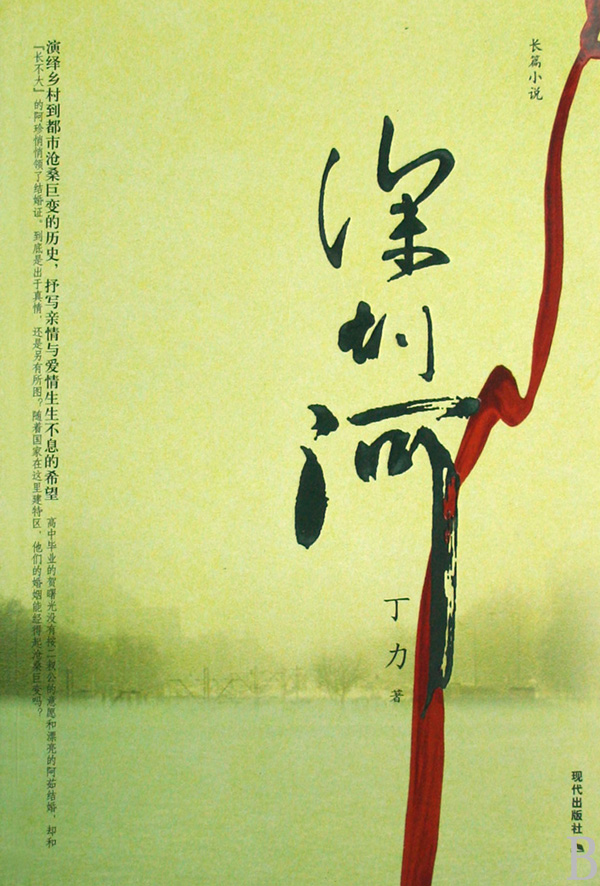 长篇小说
深圳河
丁力 著
现代出版社
演绎乡村到都市沧桑巨变的历史，抒写亲情与爱情生生不息的希望
高中毕业的贺曙光没有按二叔公的意愿和漂亮的阿茹结婚，却和
「长不大」的阿珍悄悄领了结婚证。到底是出于真情，还是另有所图？随着国家在这里建特区，他们的婚姻能经得起沧桑巨变吗？
B